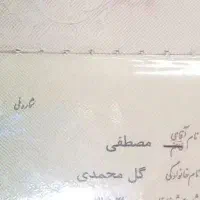 شماره ملی
نام آقای مصطفی
نام خانوادگی گل محمدی